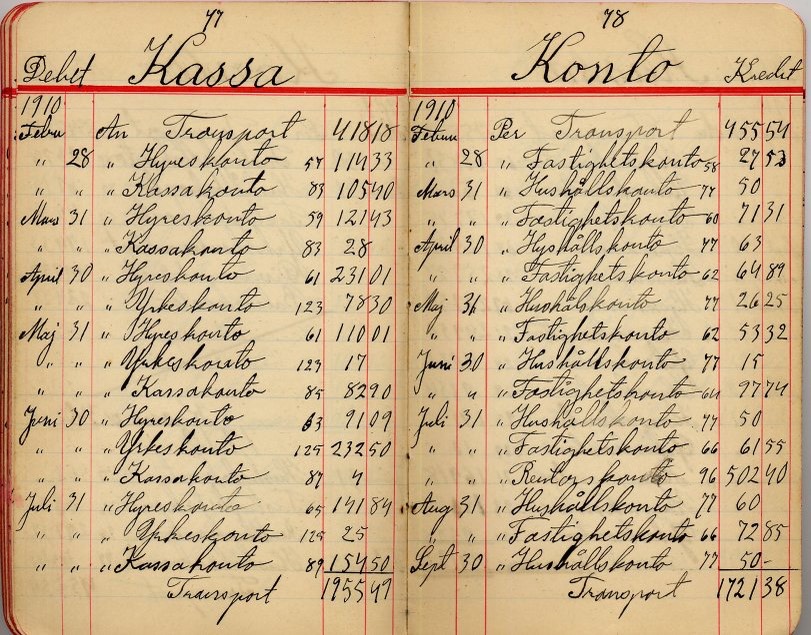 77
Debet Kassa
1910
Febru An Transport 418 18
" 28 " Hyreskonto 57 114 33
" " " Kassakonto 83 105 40
Mars 31 " Hyreskonto 59 121 43
" " " Kassakonto 83 28
April 30 " Hyreskonto 61 231 01
" " " Yrkeskonto 123 78 30
Maj 31 " Hyreskonto 61 110 01
" " " Yrkeskonto 123 17
" " " Kassakonto 85 82 90
Juni 30 " Hyreskonto 63 91 09
" " " Yrkeskonto 125 232 50
" " " Kassakonto 87 4
Juli 31 " Hyreskonto 65 141 84
" " " Yrkeskonto 125 25
" " " Kassakonto 89 154 50
Transport 1955 49
78
Konto Kredit
1910
Per Transport 455 54
" 28 " Fastighetskonto 58 27 53
Mars 31 " Hushållskonto 77 50
" " " Fastighetskonto 60 71 31
April 30 " Hushållskonto 77 63
" " " Fastighetskonto 62 64 89
Maj 31 " Hushålskonto 77 26 25
" " " Fastighetskonto 62 53 32
Juni 30 " Hushållskonto 77 15
" " " Fastighetskonto 64 97 74
Juli 31 " Hushållskonto 77 50
" " " Fastighetskonto 66 61 55
" " " 96 502 40
Aug 31 " Hushållskonto 77 60
" " " Fastighetskonto 66 72 85
Sept 30 " Hushållskonto 77 50 -
Transport 1721 38